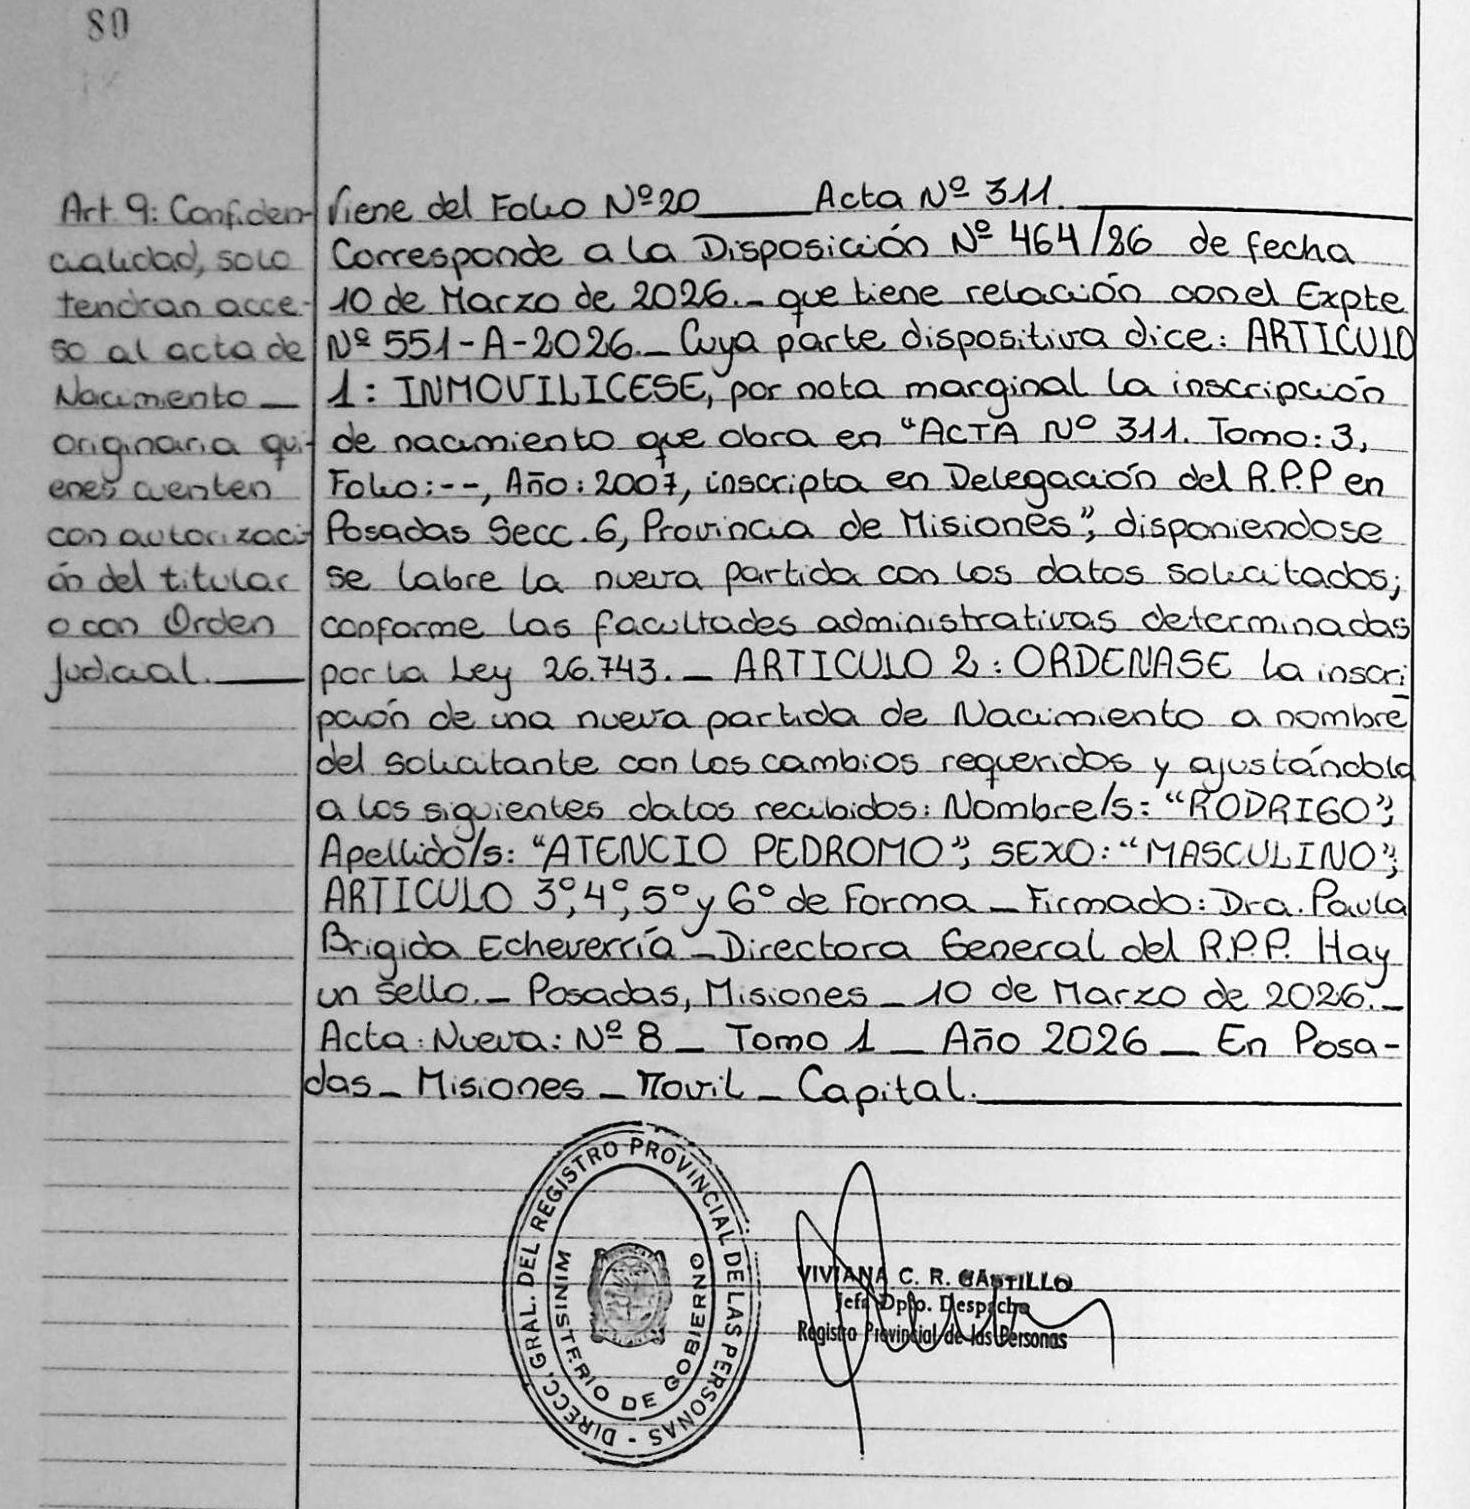 80
Art 9: Confiden-
cialidad, solo
tendran acce-
so al acta de
Nacimiento _
originaria qui-
enes cuenten
con autorizaci-
ón del titular
o con Orden
Judicial.
Viene del Folio Nº 20 ____ Acta Nº 311.
Corresponde a la Disposición Nº 464/26 de fecha
10 de Marzo de 2026._ que tiene relación con el Expte
Nº 551-A-2026._ Cuya parte dispositiva dice: ARTICULO
1: INMOVILICESE, por nota marginal la inscripción
de nacimiento que obra en "ACTA Nº 311. Tomo: 3,
Folio: --, Año: 2007, inscripta en Delegación del R.P.P en
Posadas Secc. 6, Provincia de Misiones", disponiendose
se labre la nueva partida con los datos solicitados;
conforme las facultades administrativas determinadas
por la Ley 26.743._ ARTICULO 2: ORDENASE la inscri-
pción de una nueva partida de Nacimiento a nombre
del solicitante con los cambios requeridos y ajustándola
a los siguientes datos recibidos: Nombre/s: "RODRIGO";
Apellido/s: "ATENCIO PEDROMO"; SEXO: "MASCULINO";
ARTICULO 3º, 4º, 5º y 6º de Forma _ Firmado: Dra. Paula
Brigida Echeverría _ Directora General del R.P.P. Hay
un sello._ Posadas, Misiones _ 10 de Marzo de 2026._
Acta Nueva: Nº 8 _ Tomo 1 _ Año 2026 _ En Posa-
das _ Misiones _ Movil _ Capital.
DIRECC. GRAL. DEL REGISTRO PROVINCIAL DE LAS PERSONAS -
MINISTERIO DE GOBIERNO
VIVIANA C. R. CASTILLO
Jefa Dpto. Despacho
Registro Provincial de las Personas